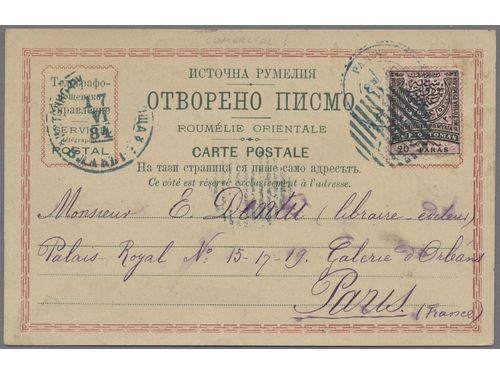 COMERCIAL!
ИСТОЧНА РУМЕЛИЯ
ОТВОРЕНО ПИСМО
ROUMÉLIE ORIENTALE
CARTE POSTALE
На тази страница ся пише само адресътъ.
Ce côté est réservé exclusivement à l'adresse.
SERVICE
POSTAL
17
VI
84
20 PARAS
Monsieur E. Dentu (libraire-éditeur)
Palais-Royal No 15-17-19. Galerie d'Orléans
Paris.
(France)